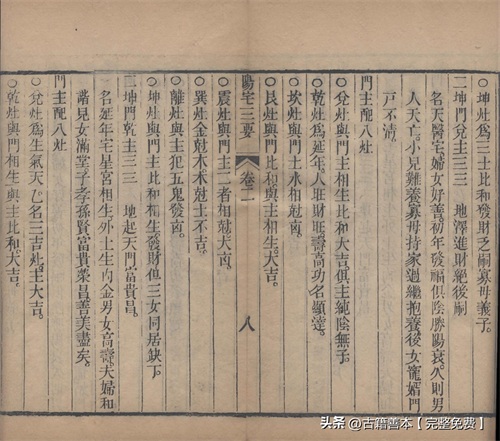 ○坤灶與門主相生比和發財之嗣寡母義子。
二坤門兌主☷☱　地澤進財絕後嗣
名天醫宅婦女好善。初年發福俱陰勝陽衰。久則男
人夭亡小兒難養寡母持家過繼抱養後女寵婿門
戶不清。
門主配八灶
○兌灶與門主相生比和大吉俱主純陰無子。
○乾灶為延年。人旺財旺壽高功名顯達。
○坎灶與門土水相尅大凶。
○艮灶與門比和與主相生。大吉。
陽宅三要
卷二
八
○震灶與門主二者相尅大凶。
○巽灶金尅木木尅土不吉。
○離灶與主犯五鬼發凶。
○坤灶與門主比和相生。發財但三女同居缺下。
三坤門乾主☷☰　地起天門富貴昌。
名延年宅星宮相生外土生內金男女高壽。夫婦和
諧兒女滿堂子孝孫賢富貴榮昌善美盡矣。
門主配八灶
○兌灶為生氣天乙名三吉灶主大吉。
○乾灶與門相生與主比和大吉。
头条 @古籍善本【完整免费】